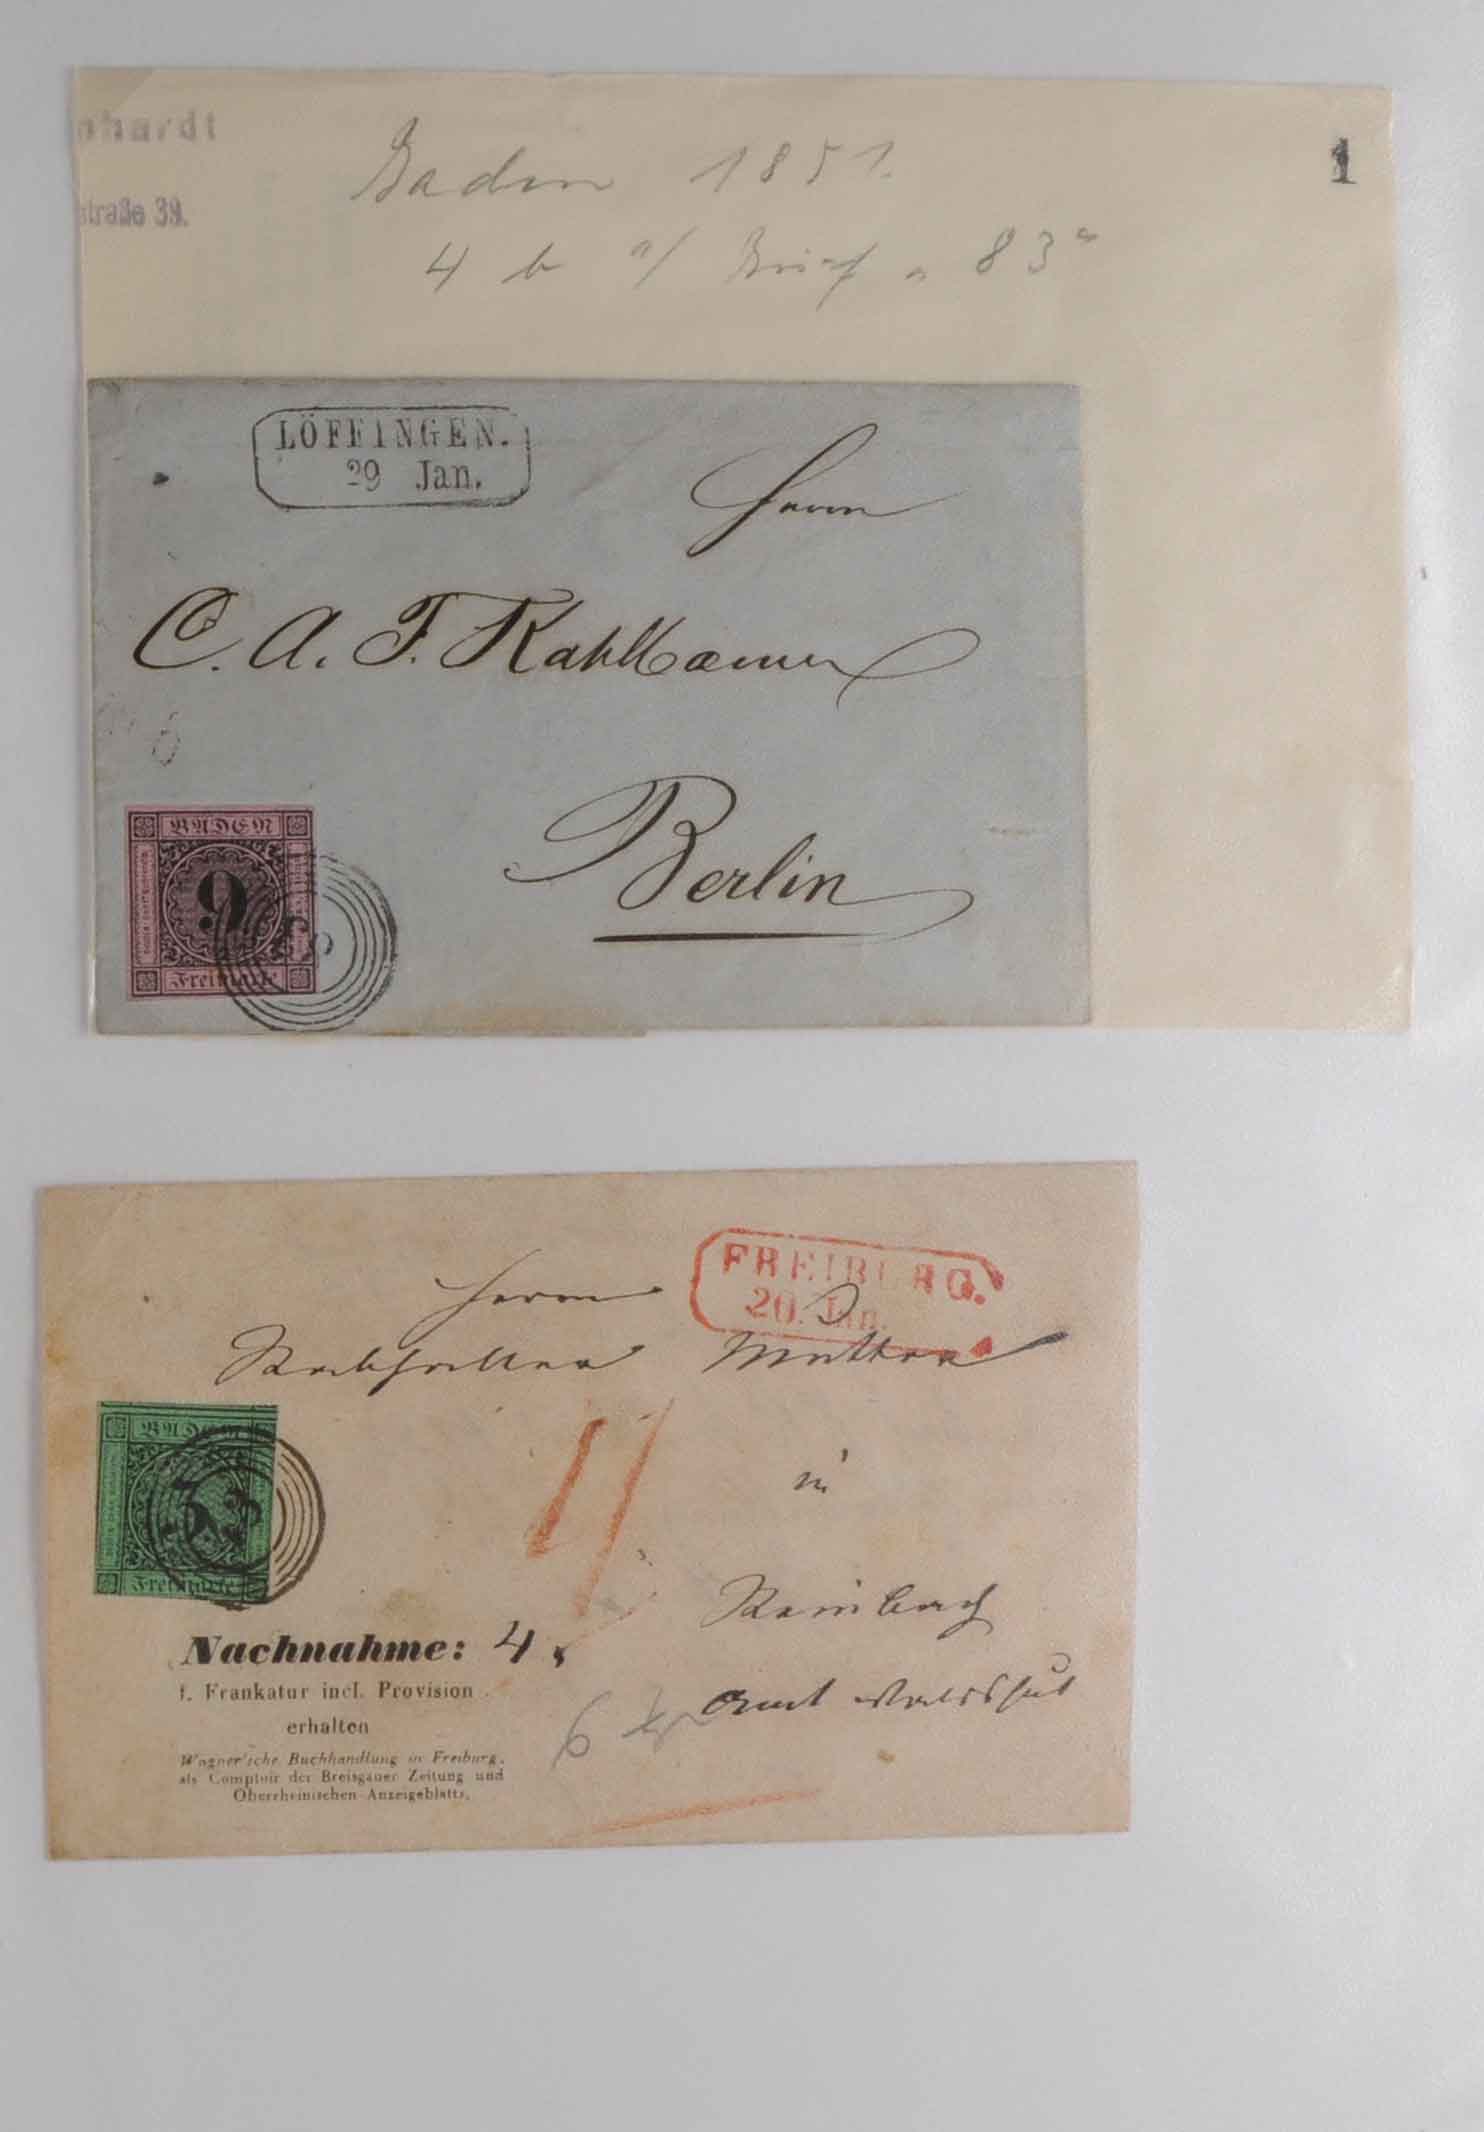 nhardt
straße 39.
Baden 1851.
1
4 b a/ Brief " 83"
LÖFFINGEN.
29 Jan.
Herrn
C. A. F. Kahlbaum
Berlin
BADEN
9
Freimarke
FREIBURG.
20. Jan.
Herrn
BADEN
3
Freimarke
in
Nachnahme: 4
f. Frankatur incl. Provision
erhalten
Wagner'sche Buchhandlung in Freiburg,
als Comptoir der Breisgauer Zeitung und
Oberrheinischen Anzeigeblatts.
Amt Waldshut
6